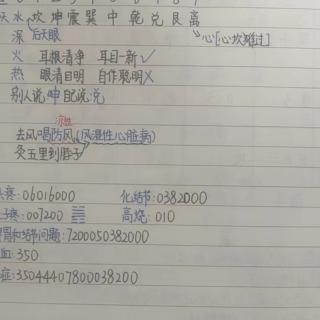 水 坎 坤 震 巽 中 乾 兑 艮 离
深 后天眼 心[心坎难过]
火 耳根清净 耳目一新✓
热 眼清目明 自作聪明×
别人说坤 自己说兑
去风喝防风(风湿性心脏病)
灸五里到脖子
寒:06016000 化结节:0382000
寒:007200 高烧:010
胃和结节问题:7200050382000
血:350
症:35044407800038200